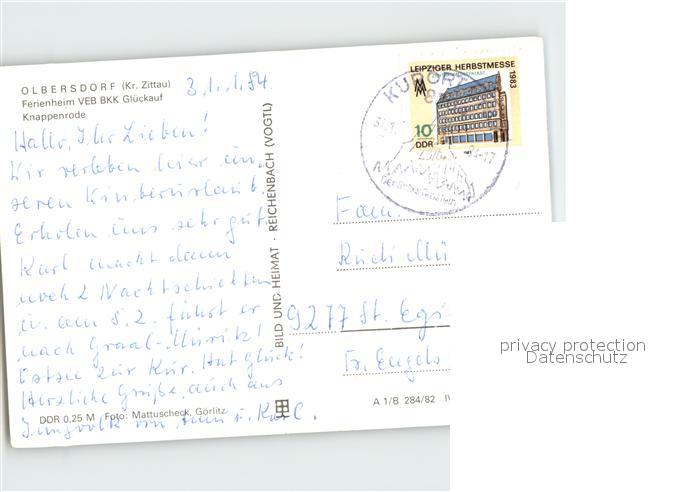 OLBERSDORF (Kr. Zittau)
Ferienheim VEB BKK Glückauf
Knappenrode
31.1.84
Hallo, Ihr Lieben!
Wir verleben hier un-
seren Winterurlaub.
Erholen uns sehr gut
Karl macht dann
noch 2 Nachtschichten
u. am 5.2. fährt er
nach Graal-Müritz!
Ostsee zur Kur. Hat Glück!
Herzliche Grüße auch ans
Jungvolk von u. Karl.
DDR 0,25 M Foto: Mattuscheck, Görlitz
BILD UND HEIMAT · REICHENBACH (VOGTL)
A 1/B 284/82 IV
LEIPZIGER HERBSTMESSE
1983
10
DDR
KURORT
Fam.
Rudi Mü
9277 St. Egi
Fr. Engels
privacy protection
Datenschutz